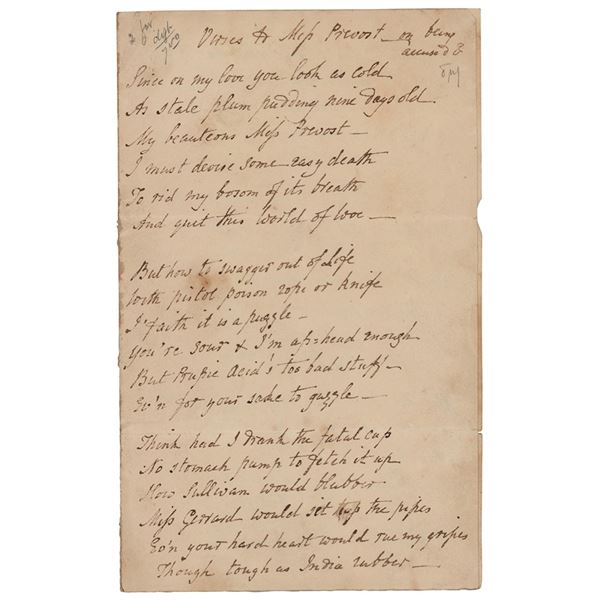 Verses to Miss Prevost — on being
accus'd &
Since on my love you look as cold
As stale plum pudding nine days old.
My beauteous Miss Prevost —
I must devise some easy death
To rid my bosom of its breath
And quit this world of woe —
But how to swagger out of Life
With pistol poison rope or knife
I'faith it is a puzzle —
You're sour & I'm ass-head enough
But Prusic Acid's too bad stuff —
Ev'n for your sake to guzzle —
Think had I drank the fatal cup
No stomach pump to fetch it up
How Sullivan would blubber
Miss Gerrard would set up the pipes
Ev'n your hard heart would rue my gripes
Though tough as India rubber —